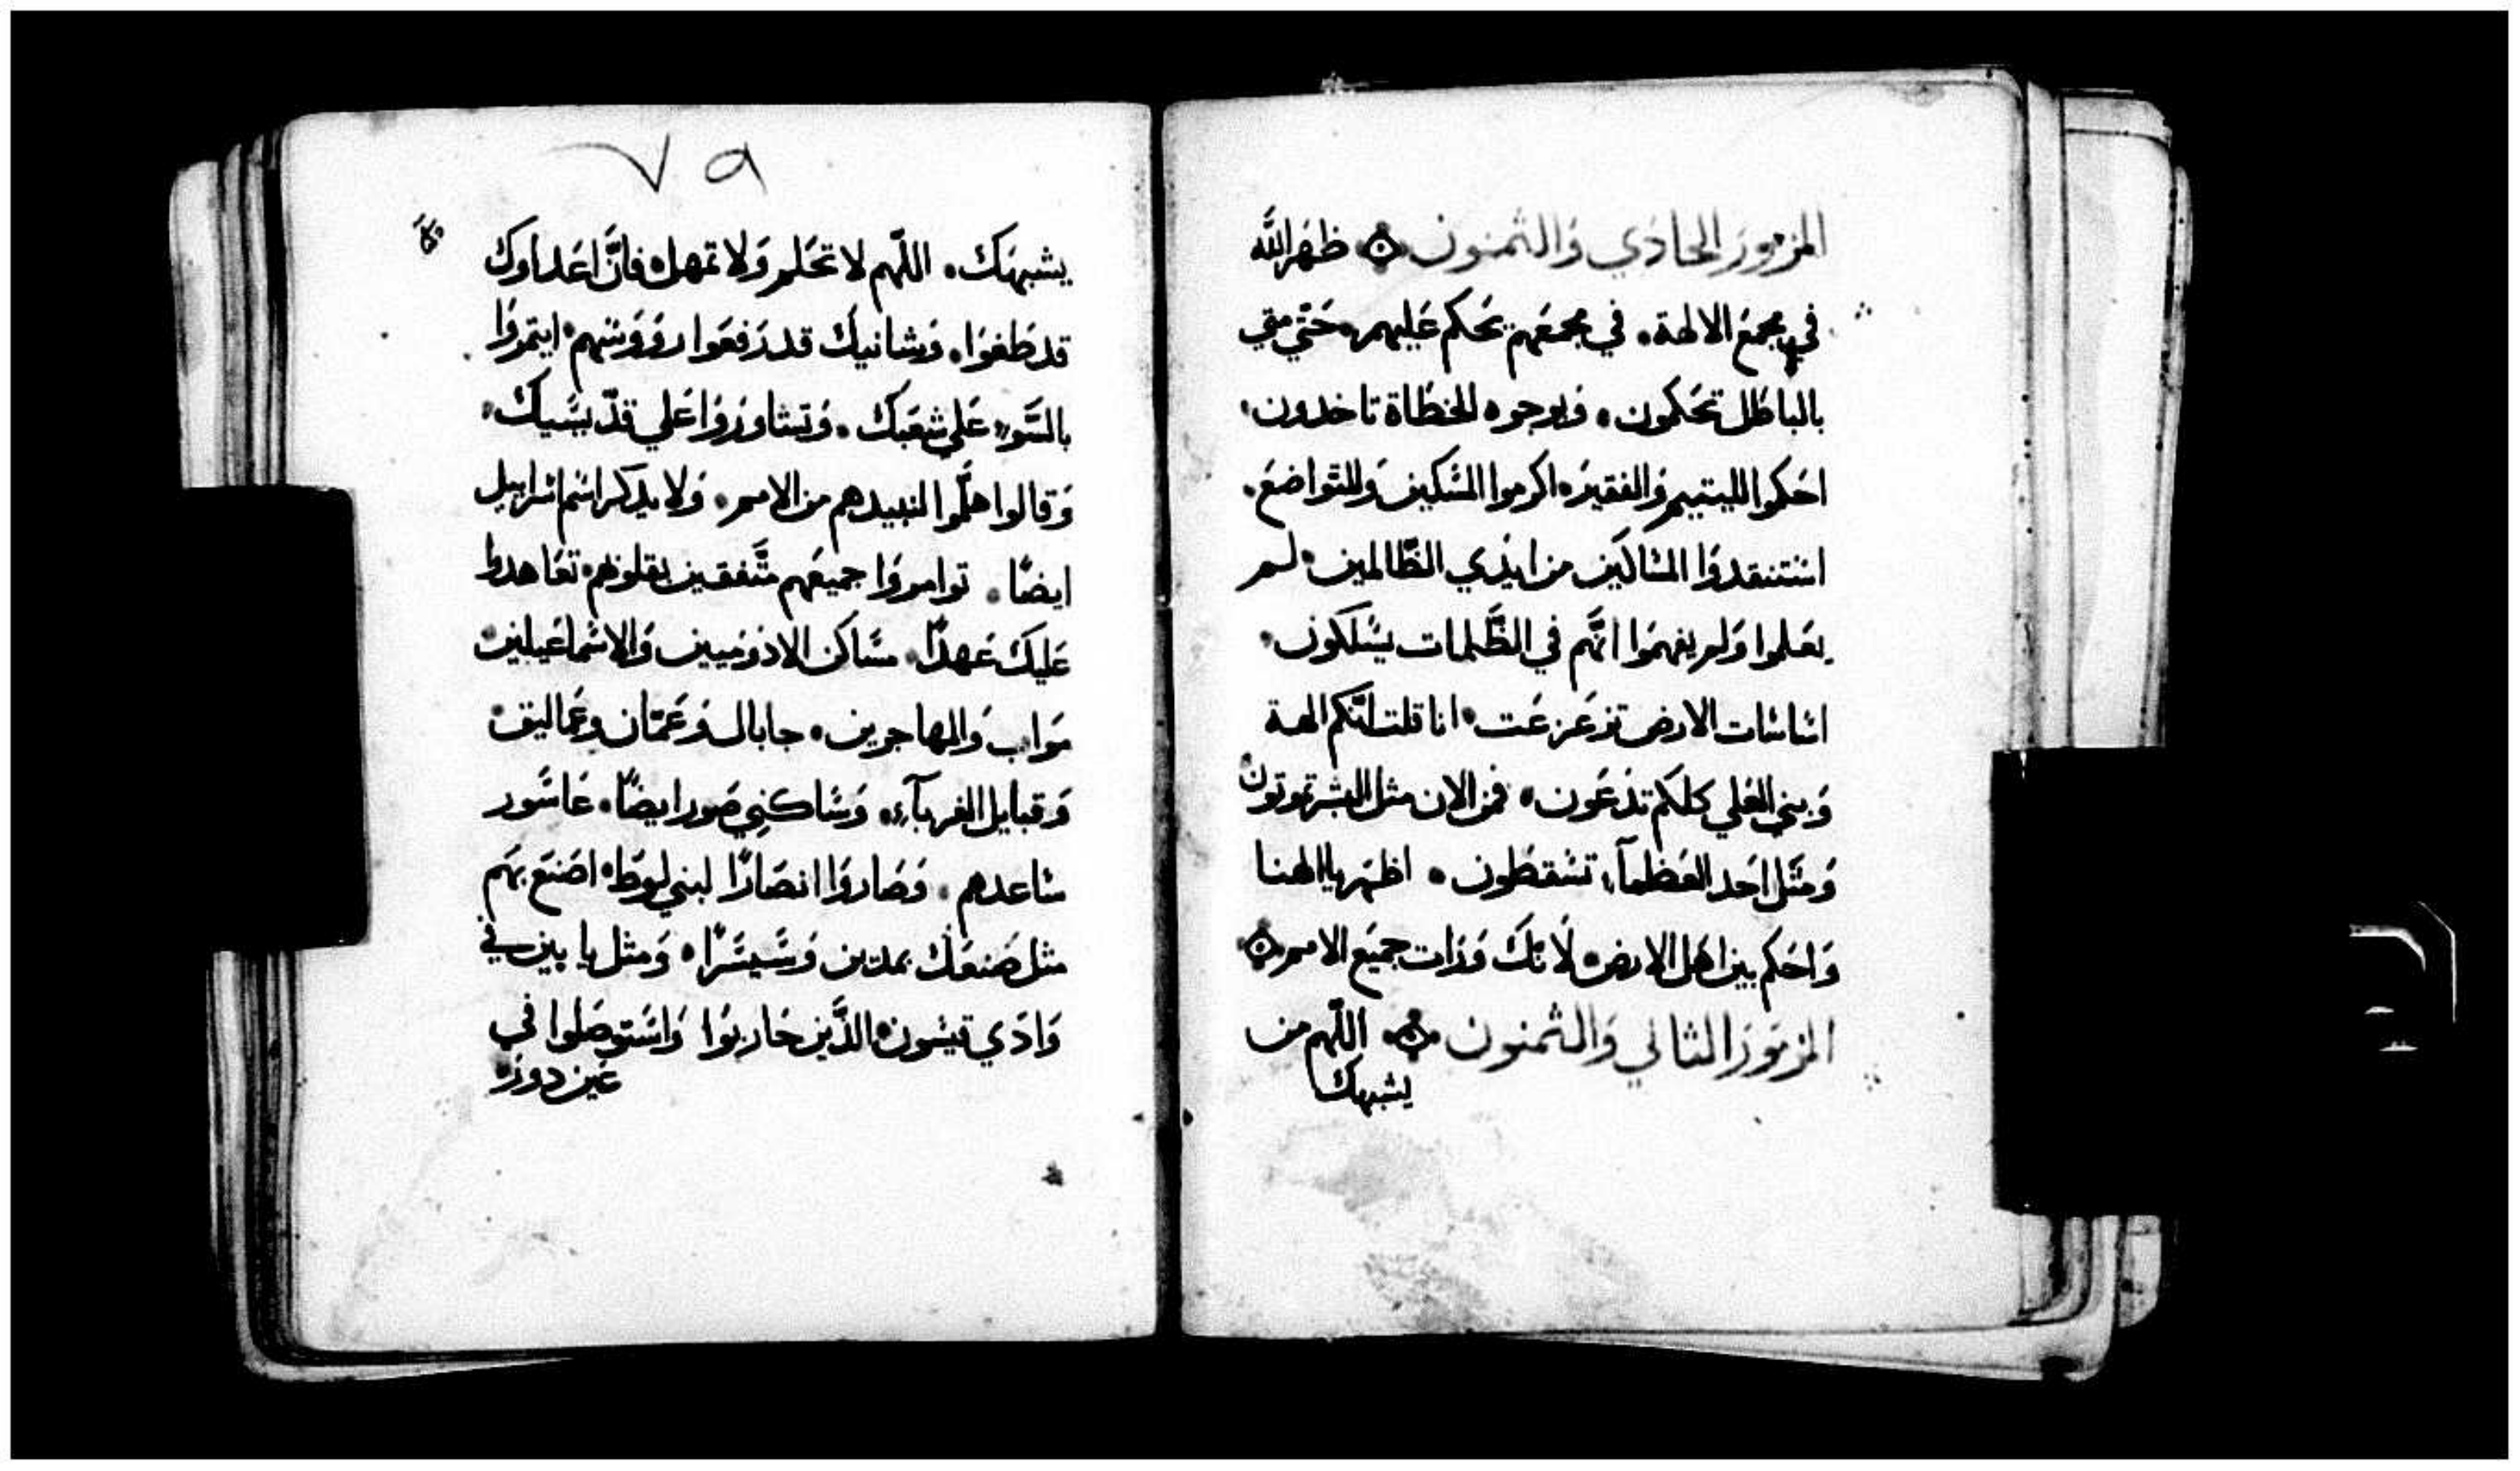 المزمور الحادي والثمنون ظهر الله
في مجمع الالهة. في مجمعهم يحكم عليهم. حتي متي
بالباطل تحكمون. وبوجوه الخطاة تاخدون.
احكموا لليتيم والفقير. اكرموا المسكين والمتواضع.
استنقدوا المساكين من ايدي الظالمين. لم
يعلموا ولم يفهموا انهم في الظلمات يسلكون.
اساسات الارض تزعزعت. انا قلت انكم الهة
وبني العلي كلكم تدعون. فمن الان مثل البشر تموتون
ومثل احد العظمآء تسقطون. اظهر يا الهنا
واحكم بين اهل الارض. لانك ورات جميع الامم
المزمور الثاني والثمنون اللهم من
يشبهك
٧٩
يشبهك. اللهم لا تحلم ولا تمهل. فان اعداوك
قد طغوا. وشانيك قد رفعوا رووسهم. ايتمروا
بالسوء علي شعبك. وتشاوروا علي قديسيك.
وقالوا هلموا لنبيدهم من الامم. ولا يدكر اسم اسراييل
ايضا. توامروا جميعهم متفقين بقلوبهم. تعاهدوا
عليك عهدا. مساكن الادوميين والاسماعيليين
مواب والمهاجرين. جابال وعمان وعماليق.
وقبايل الغربآء. وساكني صور ايضا. عاسور
ساعدهم. وصاروا انصارا لبني لوط. اصنع بهم
مثل صنعك بمدين وسيسرا. ومثل يابين في
وادي قيسون. الذين حاربوا واستوصلوا في
عين دور.